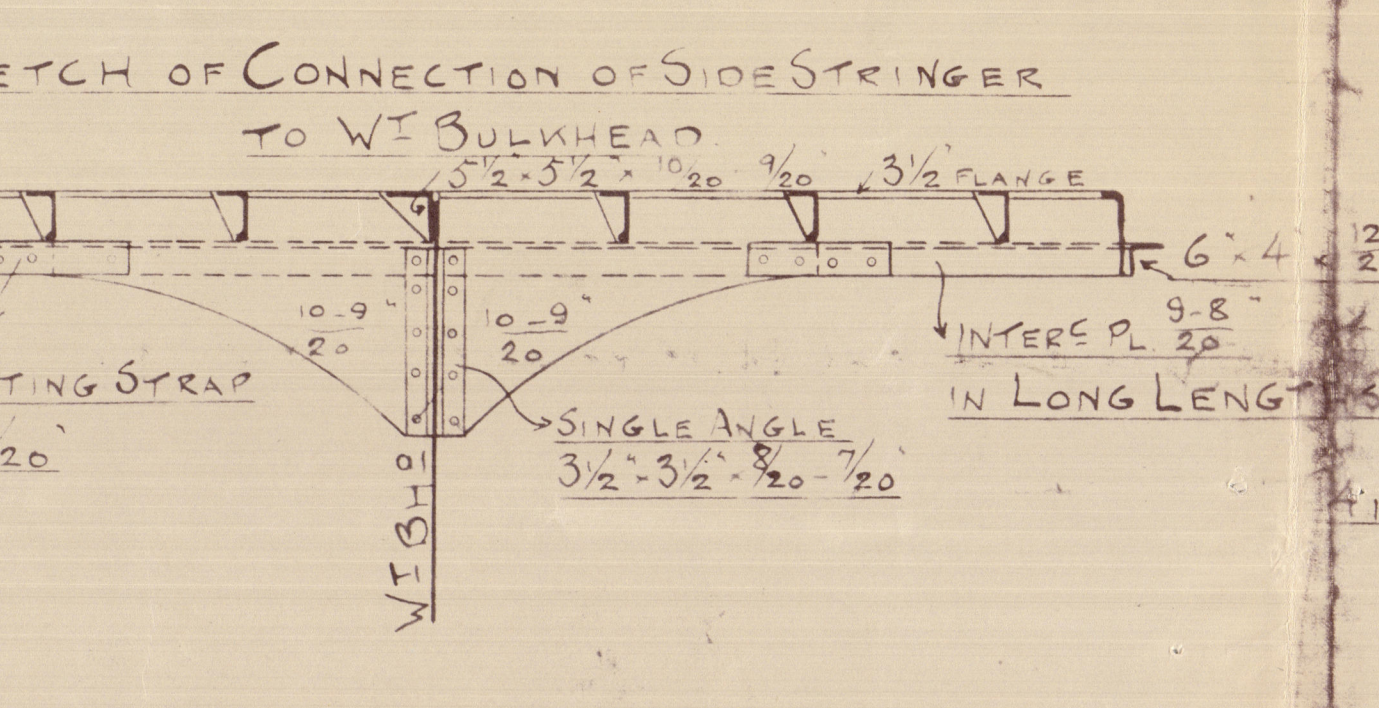 ETCH OF CONNECTION OF SIDE STRINGER
TO WT BULKHEAD.
5½" × 5½" × 10/20 - 9/20" 3½" FLANGE
6" × 4
10-9"
20
10-9"
20
INTERC PL. 9-8"
20
IN LONG LENGT
TING STRAP
20"
SINGLE ANGLE
3½" × 3½" × 8/20 - 7/20"
WT BHD